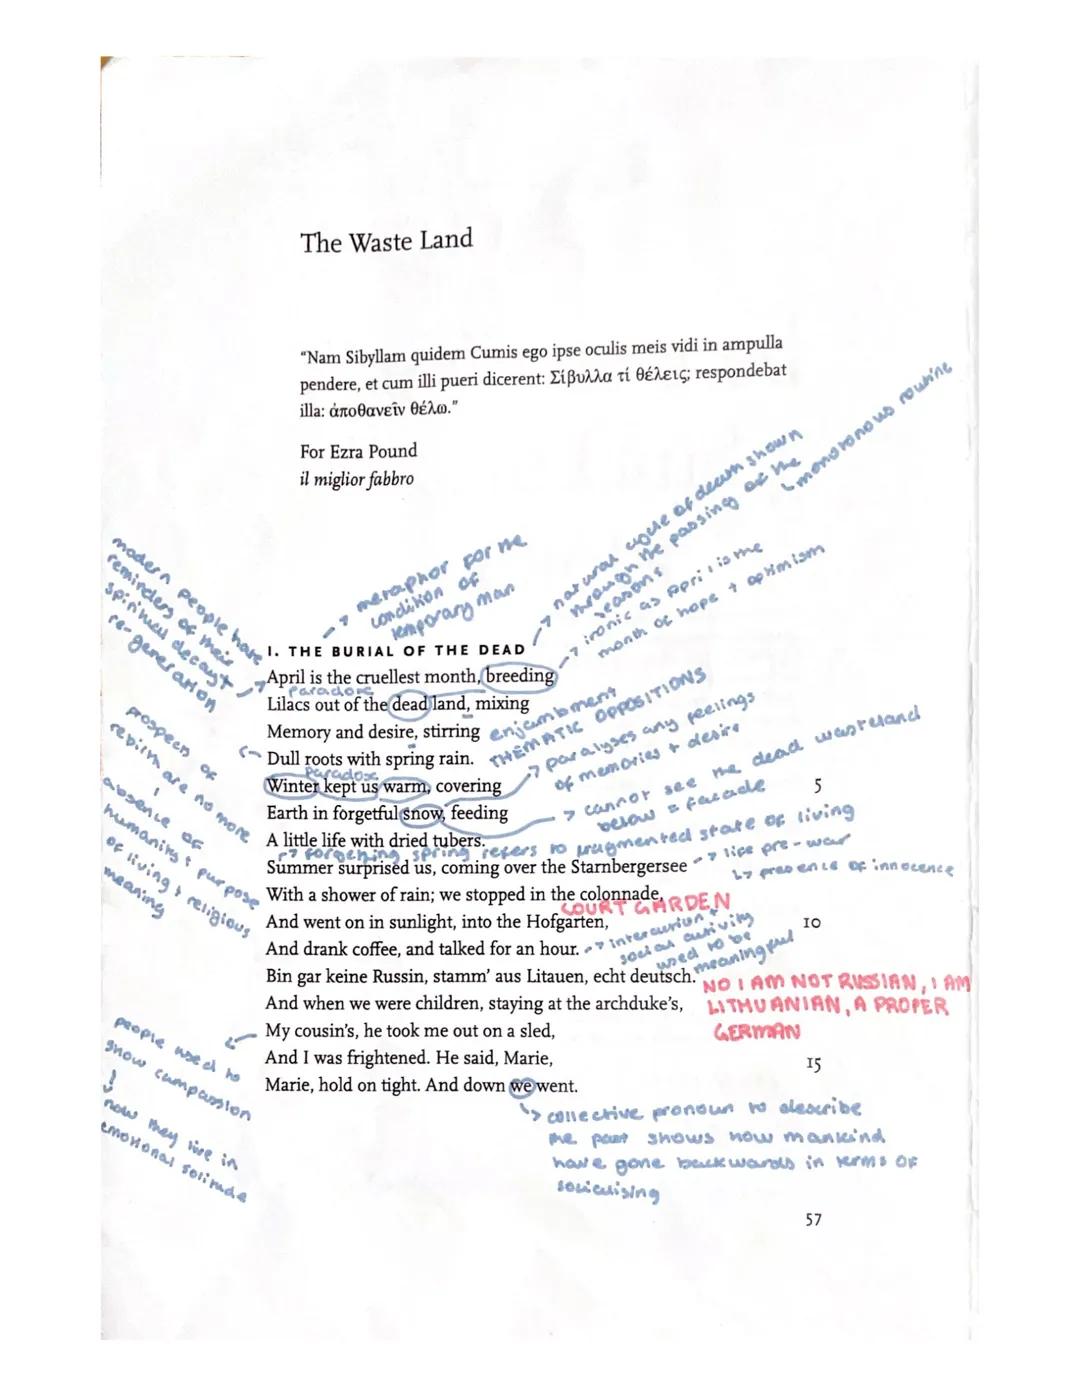 The Waste Land
"Nam Sibyllam quidem Cumis ego ipse oculis meis vidi in ampulla
pendere, et cum illi pueri dicerent: Σίβυλλα τί θέλεις; respondebat
illa: ἀποθανεῖν θέλω."
For Ezra Pound
il miglior fabbro
natural cycle of death shown
through the passing of the
seasons
↳ monotonous routine
metaphor for the
condition of
temporary man
ironic as april is the
month of hope + optimism
modern people have
reminders of their
spiritual decay +
re-generation
I. THE BURIAL OF THE DEAD
April is the cruellest month, breeding
paradox
Lilacs out of the dead land, mixing
Memory and desire, stirring
enjambment
THEMATIC OPPOSITIONS
Dull roots with spring rain.
paralyses any feelings
of memories + desire
paradox
Winter kept us warm, covering
5
Earth in forgetful snow, feeding
cannot see the dead wasteland
below = facade
A little life with dried tubers.
forgetting spring refers to fragmented state of living
Summer surprised us, coming over the Starnbergersee
life pre-war
↳ presence of innocence
With a shower of rain; we stopped in the colonnade,
COURT GARDEN
And went on in sunlight, into the Hofgarten,
10
And drank coffee, and talked for an hour.
interaction +
social activity
used to be
meaningful
Bin gar keine Russin, stamm' aus Litauen, echt deutsch.
NO I AM NOT RUSSIAN, I AM
LITHUANIAN, A PROPER
GERMAN
And when we were children, staying at the archduke's,
My cousin's, he took me out on a sled,
And I was frightened. He said, Marie,
15
Marie, hold on tight. And down we went.
prospects of
rebirth are no more
absence of
humanity + purpose
of living + religious
meaning
people used to
show compassion
now they live in
emotional solitude
collective pronoun to describe
the past shows how mankind
have gone backwards in terms of
socialising
57